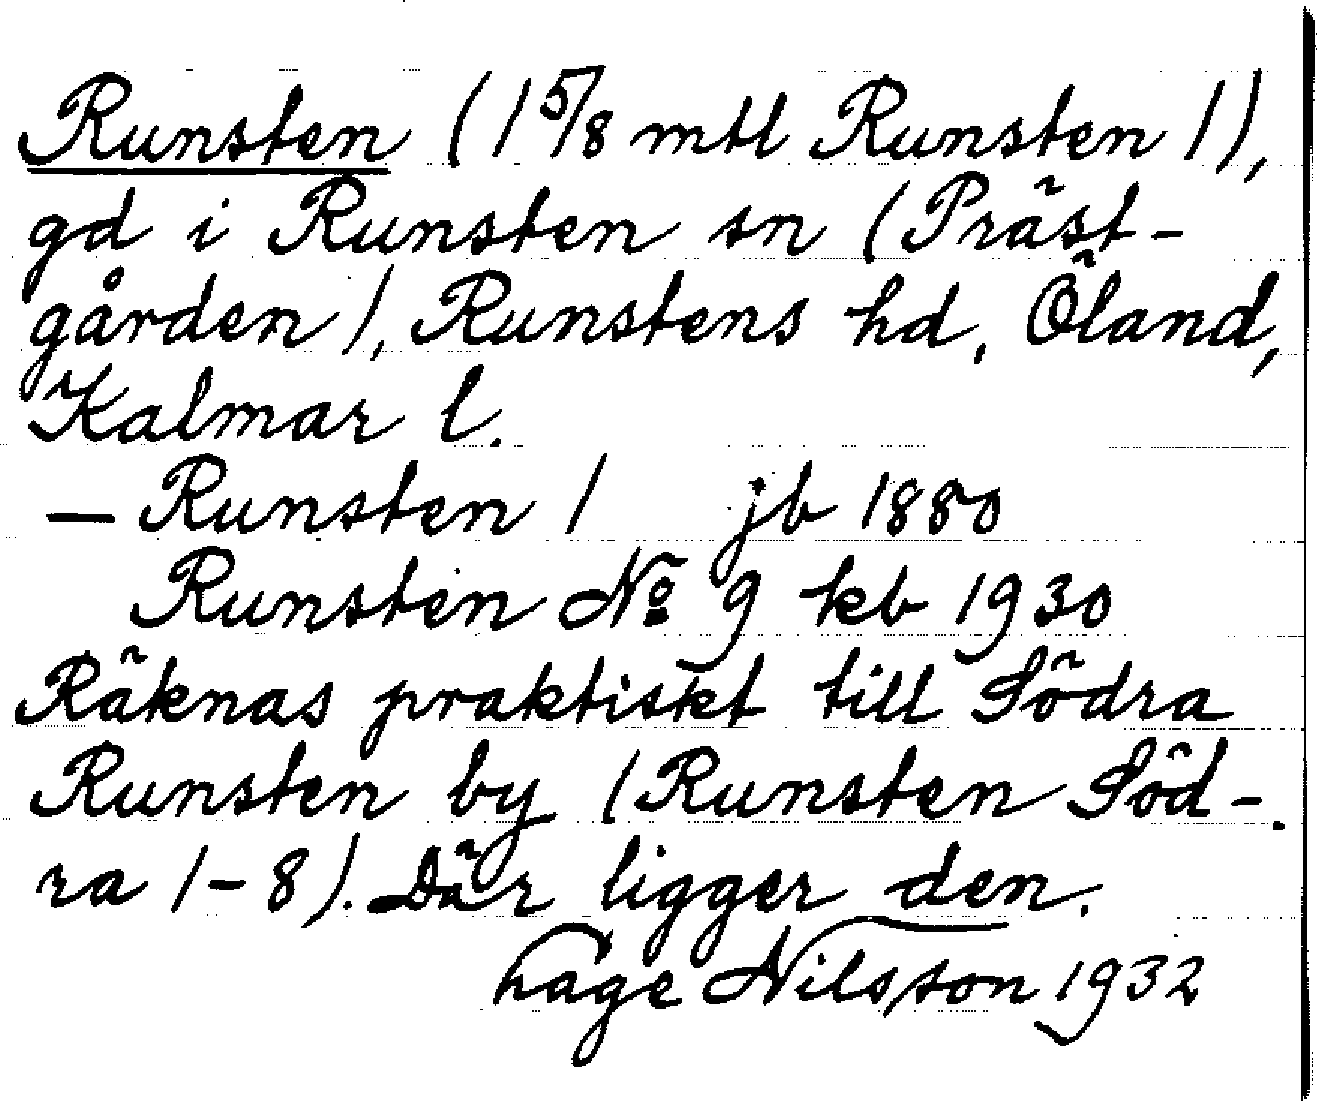 Runsten (1 5/8 mtl Runsten 1),
gd i Runsten sn (Präst-
gården), Runstens hd, Öland,
Kalmar l.
— Runsten 1 jb 1880
Runsten No 9 kb 1930
Räknas praktiskt till Södra
Runsten by (Runsten Söd-
ra 1-8). Där ligger den.
Hage Nilsson 1932